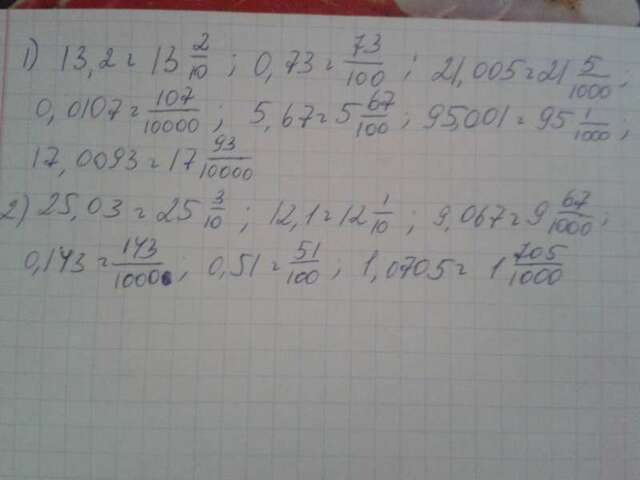 1) 13,2 = 13 2/10 ; 0,73 = 73/100 ; 21,005 = 21 5/1000 ;
0,0107 = 107/10000 ; 5,67 = 5 67/100 ; 95,001 = 95 1/1000 ;
17,0093 = 17 93/10000
2) 25,03 = 25 3/10 ; 12,1 = 12 1/10 ; 9,067 = 9 67/1000 ;
0,143 = 143/1000 ; 0,51 = 51/100 ; 1,0705 = 1 705/1000